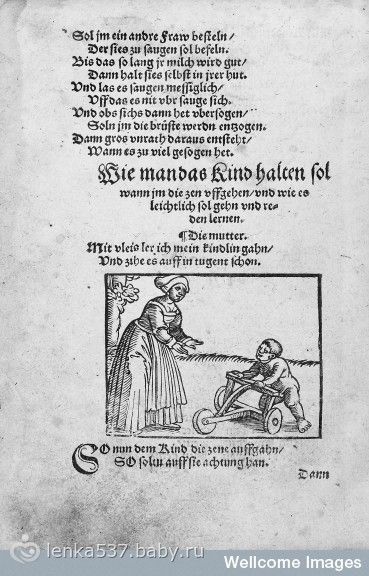 Sol jm ein andre Fraw besteln/
Der sies zu saugen sol befeln.
Bis das so lang jr milch wird gut/
Dann halt sies selbst in jrer hut.
Und las es saugen messiglich/
Uff das es nit vbr sauge sich.
Und obs sichs dann het vbersogen/
Soln jm die brüste werdn entzogen.
Dann gros vnrath daraus entsteht/
Wann es zu viel gesogen het.
Wie man das Kind halten sol
wann jm die zen vffgehen/vnd wie es
leichtlich sol gehn vnd re-
den lernen.
¶Die mutter.
Mit vleis ler ich mein kindlin gahn/
Und zihe es auff in tugent schon.
SO nun dem Kind die zene auffgahn/
SO soltu auff sie achtung han.
Dann
lenka537.baby.ru
Wellcome Images